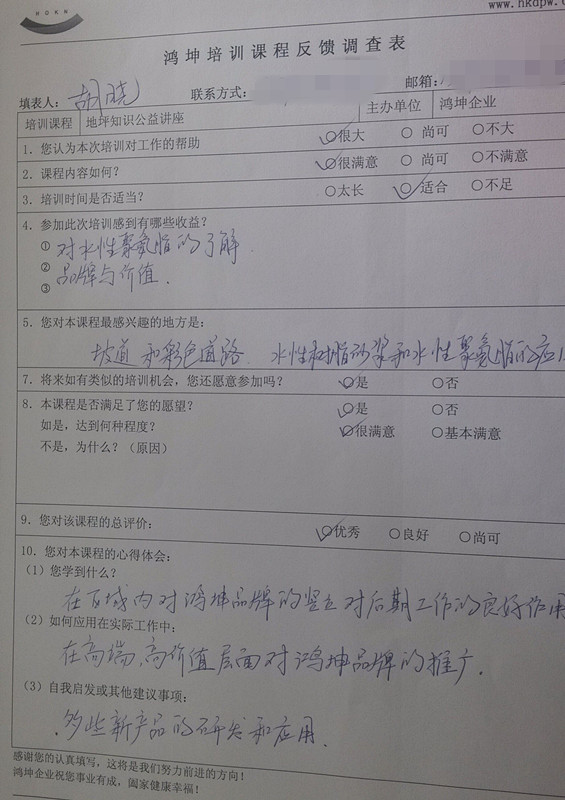 HDKN
www.hkdpw.c
鸿坤培训课程反馈调查表
填表人： 胡晓 联系方式： 邮箱：
培训课程 地坪知识公益讲座 主办单位 鸿坤企业
1．您认为本次培训对工作的帮助 ○很大 ○ 尚可 ○不大
2．课程内容如何？ ○很满意 ○ 尚可 ○不满意
3．培训时间是否适当？ ○太长 ○ 适合 ○不足
4．参加此次培训感到有哪些收益？
① 对水性聚氨脂的了解．
② 品牌与价值．
③
5．您对本课程最感兴趣的地方是：
坡道和彩色道路．水性树脂砂浆和水性聚氨脂的应
7．将来如有类似的培训机会，您还愿意参加吗？ ○是 ○否
8．本课程是否满足了您的愿望？ ○是 ○否
如是，达到何种程度？ ○很满意 ○基本满意
不是，为什么？（原因）
9．您对该课程的总评价： ○优秀 ○良好 ○尚可
10．您对本课程的心得体会：
（1）您学到什么？
在区域内对鸿坤品牌的竖立对后期工作的良好作用
（2）如何应用在实际工作中：
在高端，高价值层面对鸿坤品牌的推广．
（3）自我启发或其他建议事项：
多些新产品的研发和应用．
感谢您的认真填写，这将是我们努力前进的方向！
鸿坤企业祝您事业有成，阖家健康幸福！